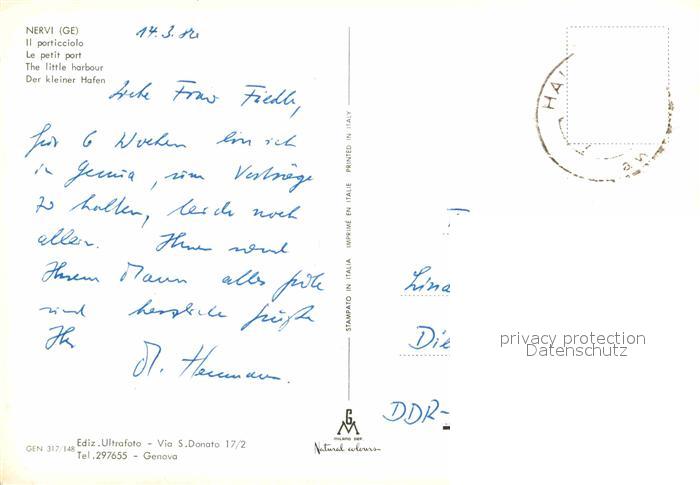 NERVI (GE)
Il porticciolo
Le petit port
The little harbour
Der kleiner Hafen
14.3.
Liebe Frau Fiedler,
für 6 Wochen bin ich
in Genua, um Vorträge
zu halten, leider noch
allein. Ihnen und
Ihrem Mann alles Gute
und herzliche Grüße
Ihr
M. Herrmann.
GEN 317/148
Ediz.Ultrafoto – Via S.Donato 17/2
Tel.297655 – Genova
STAMPATO IN ITALIA IMPRIMÉ EN ITALIE PRINTED IN ITALY
GM
MILANO DEP.
Natural colours
HA
Lina
Die
DDR-
privacy protection
Datenschutz